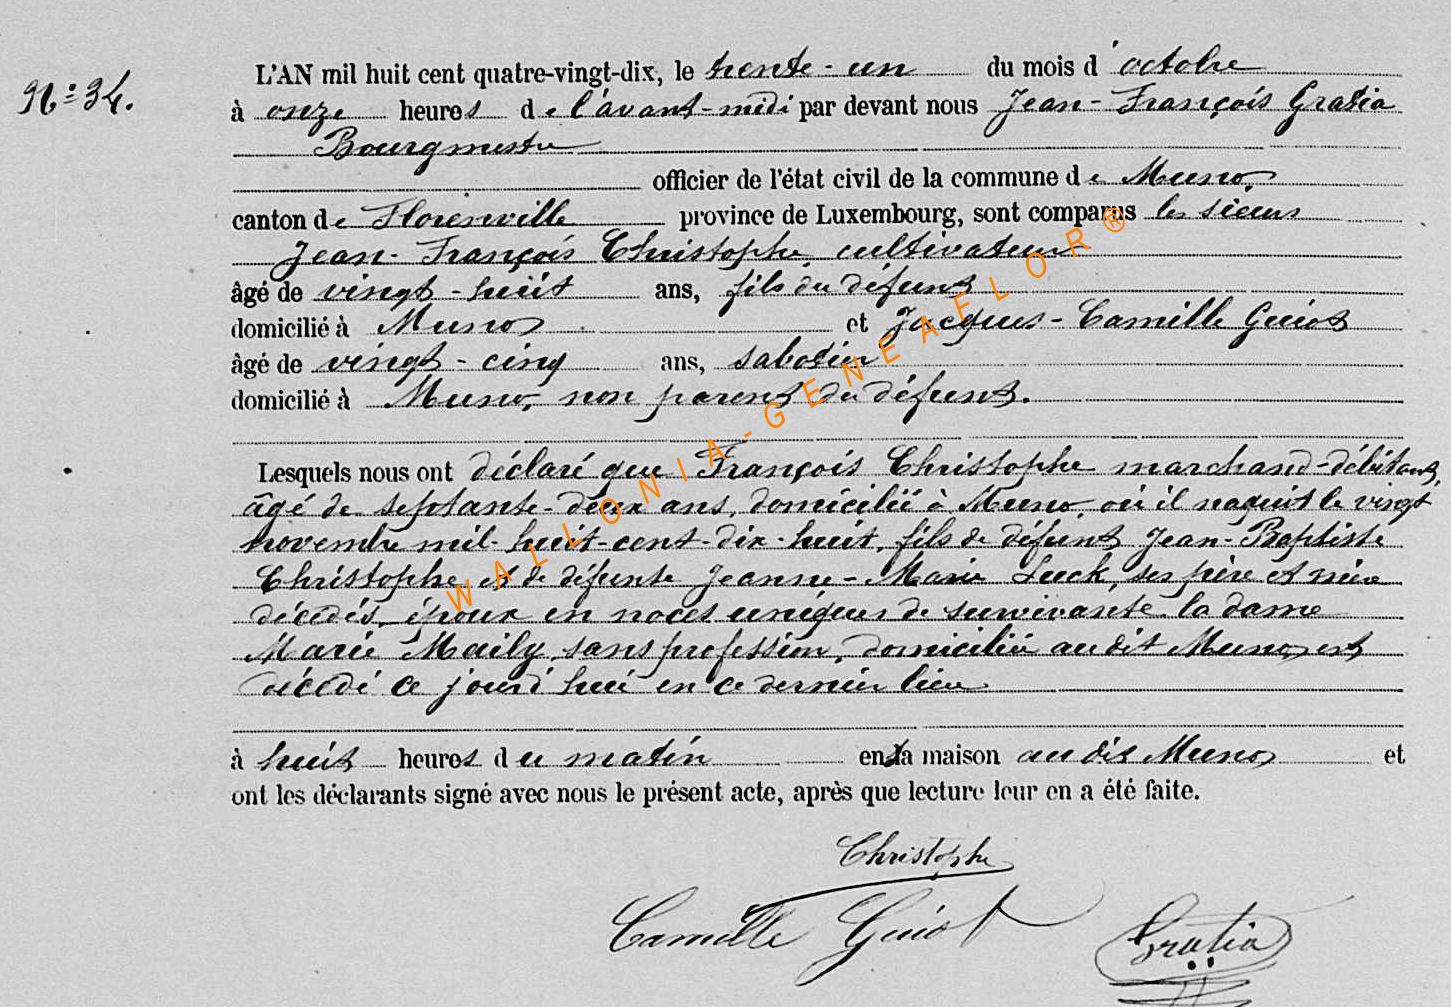 N° 34.
L'AN mil huit cent quatre-vingt-dix, le trente-un du mois d'octobre
à onze heures de l'avant-midi par devant nous Jean-François Gratia
Bourgmestre
officier de l'état civil de la commune de Muno,
canton de Florenville province de Luxembourg, sont comparus les sieurs
Jean-François Christophe, cultivateur
âgé de vingt-huit ans, fils du défunt
domicilié à Muno et Jacques-Camille Guiot
âgé de vingt-cinq ans, sabotier
domicilié à Muno, non parent du défunt.
Lesquels nous ont déclaré que François Christophe marchand-débitant,
âgé de septante-deux ans, domicilié à Muno, où il naquit le vingt
novembre mil-huit-cent-dix-huit, fils de défunt Jean-Baptiste
Christophe et de défunte Jeanne-Marie Luck, ses père et mère
décédés, époux en noces uniques de survivante la dame
Marie Maily, sans profession, domiciliée audit Muno, est
décédé ce jourd'hui en ce dernier lieu
à huit heures du matin en sa maison audit Muno et
ont les déclarants signé avec nous le présent acte, après que lecture leur en a été faite.
Christophe
Camille Guiot
Gratia
WALLONIA-GENEAFLOR®